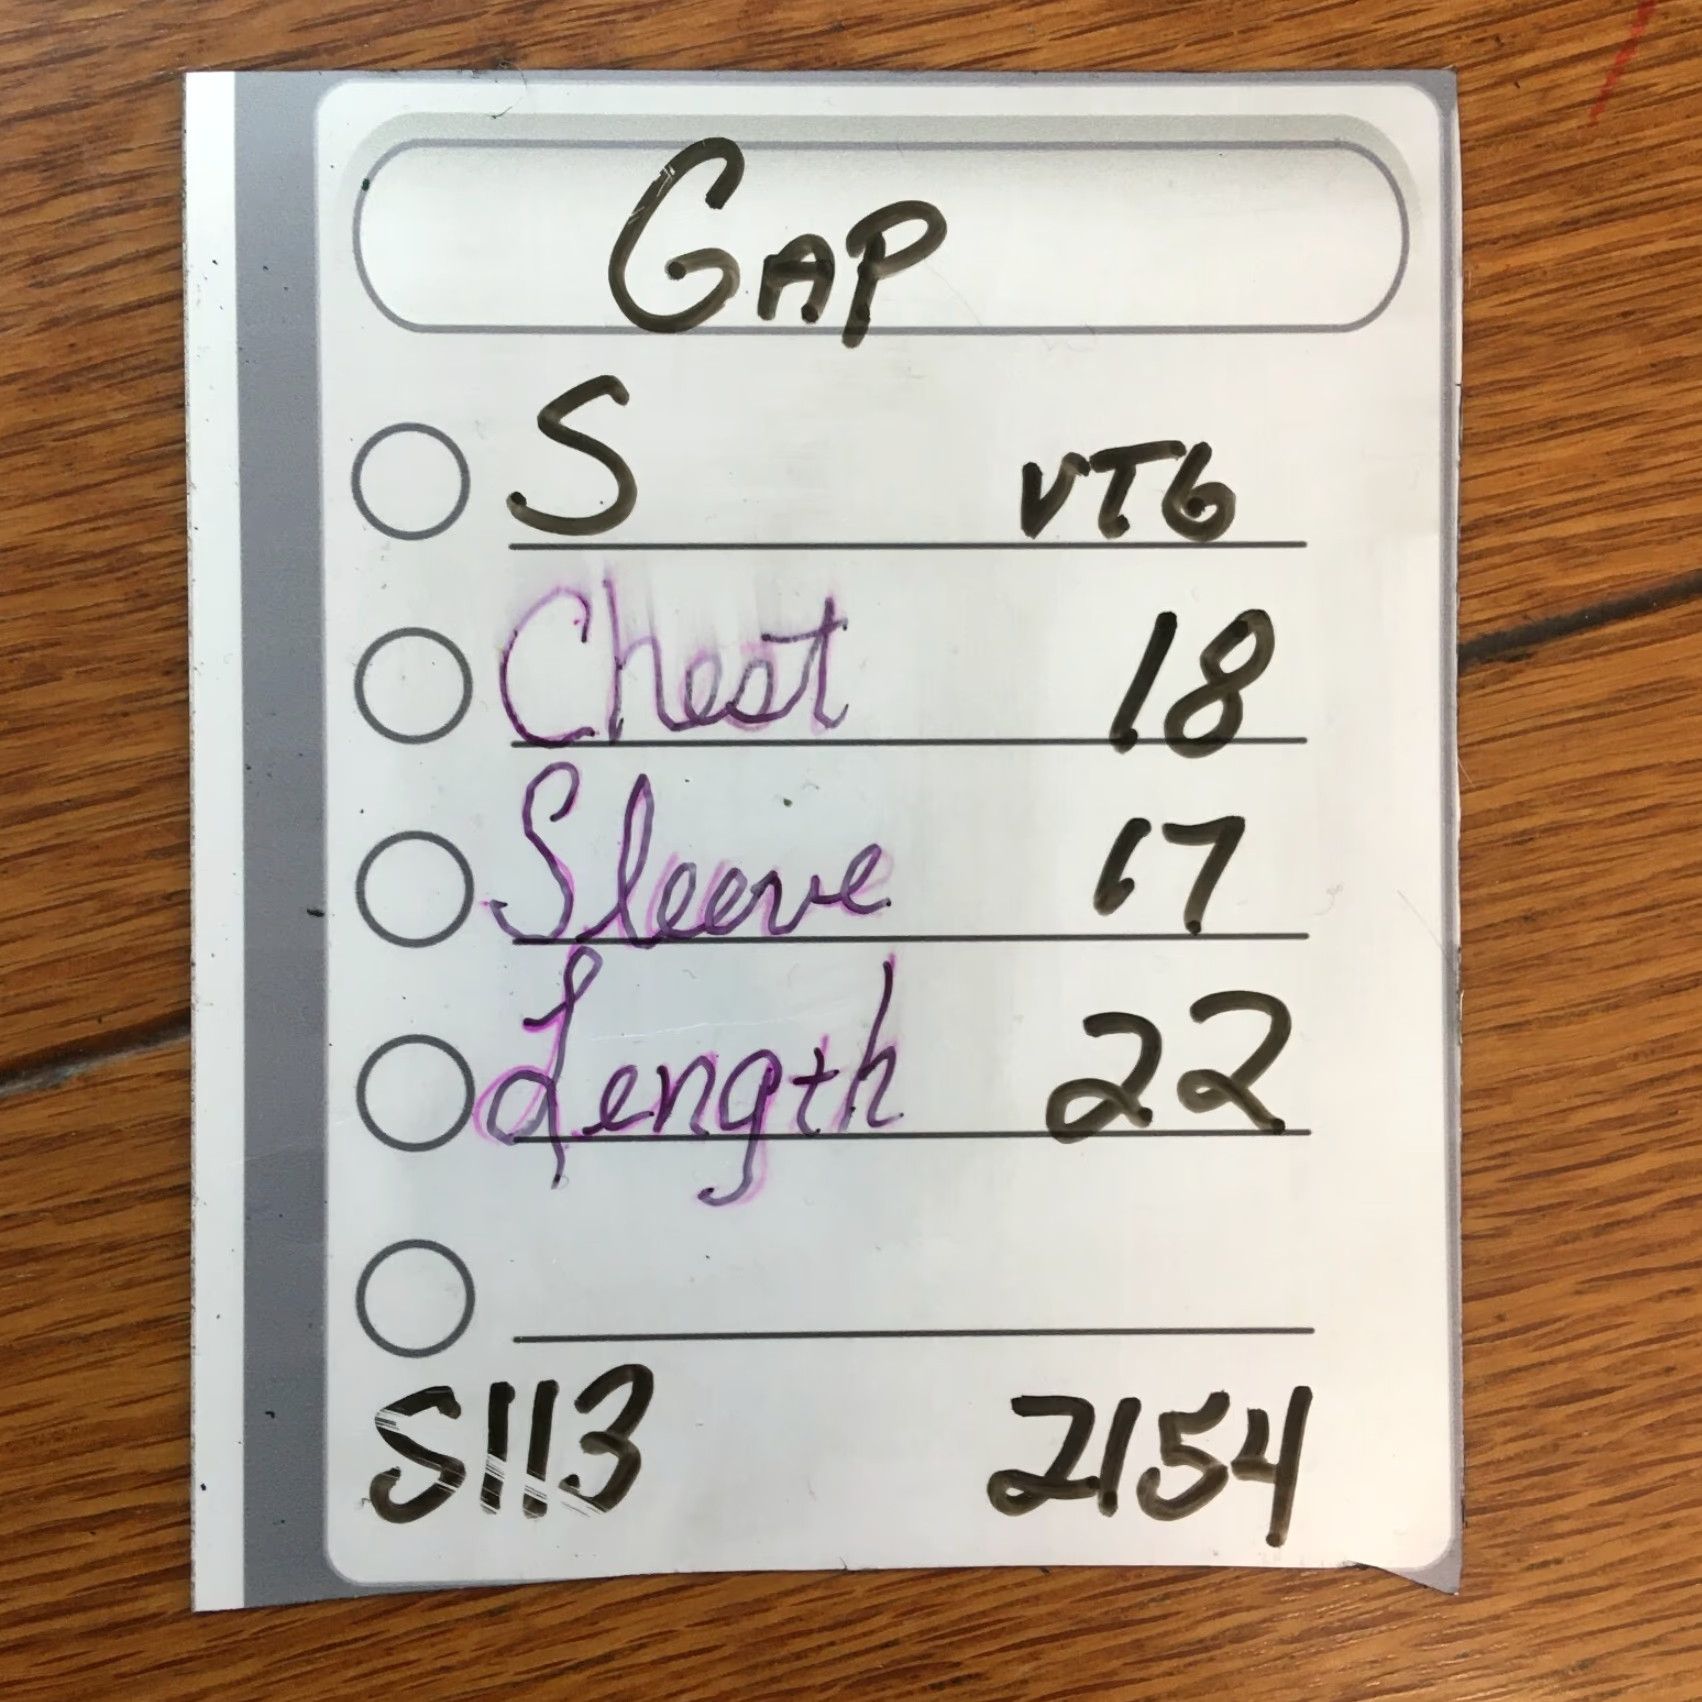 GAP
S VTG
Chest 18
Sleeve 17
Length 22
S113 2154